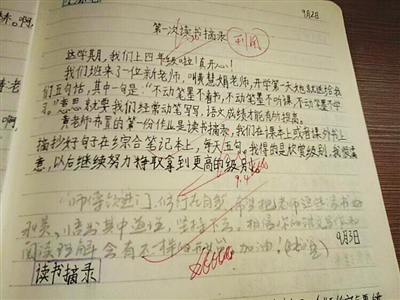 9月2日
第一次读书摘录
利用
这学期,我们上四年级啦!真开心!
我们班来了一位新老师,叫黄慧娟老师,开学第一天她就送给我
们五句话,其中一句是:“不动笔墨不看书,不动笔墨不听课,不动笔墨不学
习。”意思就要我们经常动笔写写,语文成绩才能有所提高。
黄老师布置的第一份作业是读书摘录,我们在课本上或者课外书上
摘抄好句子在综合笔记本上,每天五句。我得的是欣赏级别,我很满
意,以后继续努力争取拿到更高的级别。
9.4
“师傅领进门,修行在自
坚持下去,相信你的语文
阅读理解会有不一样的 加油!
9月3日
读书摘录